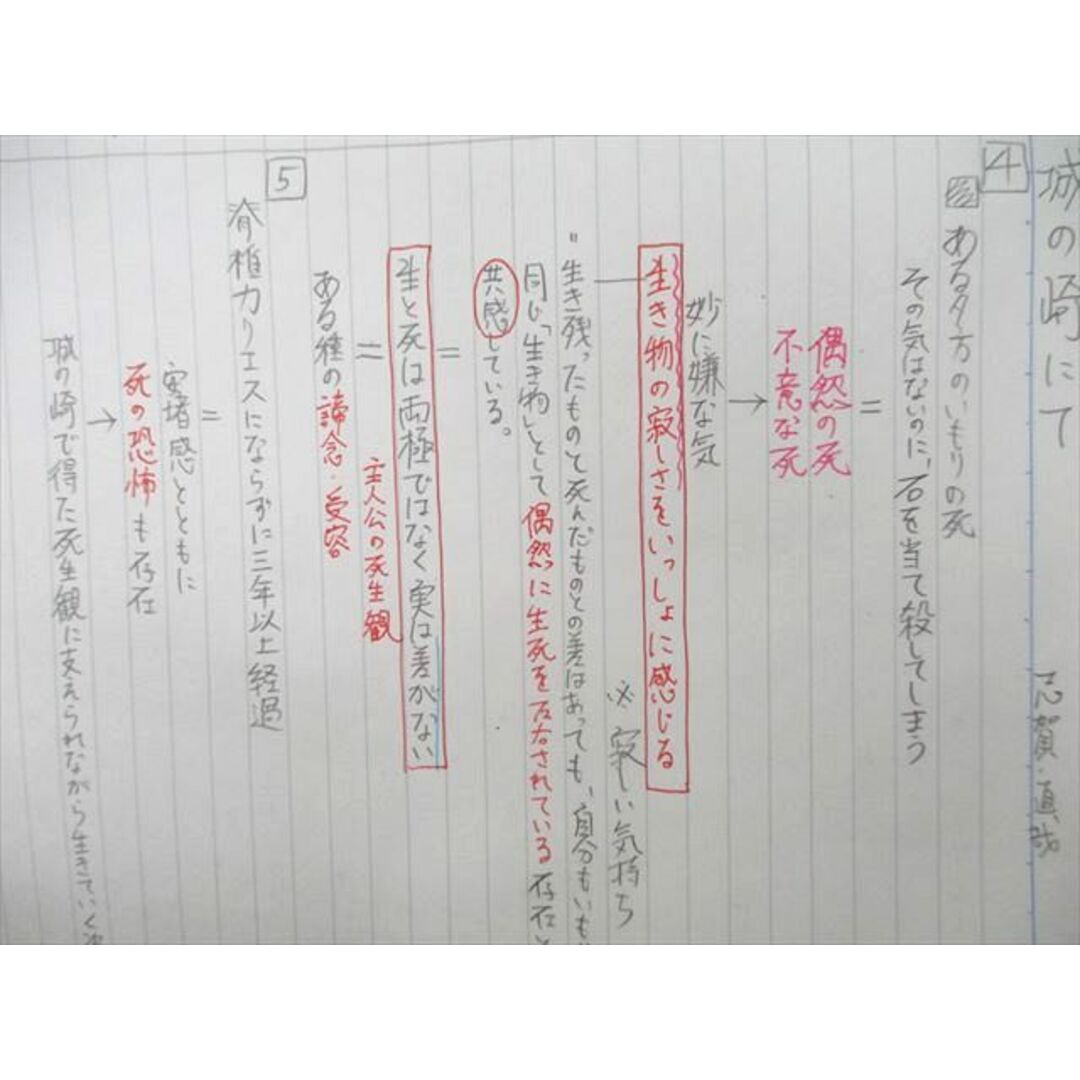 城の崎にて
志賀直哉
4
ある夕方のいもりの死
その気はないのに、石を当て殺してしまう
＝
偶然の死
不意な死
→
妙に嫌な気
生き物の寂しさをいっしょに感じる
※寂しい気持ち
〃生き残ったものと死んだものとの差はあっても、自分もいもり
同じ「生き物」として偶然に生死を左右されている存在と
共感している。
＝
生と死は両極ではなく実は差がない
主人公の死生観
＝
ある種の諦念・受容
5
脊椎カリエスにならずに三年以上経過
＝
安堵感とともに
死の恐怖も存在
→
城の崎で得た死生観に支えられながら生きていく